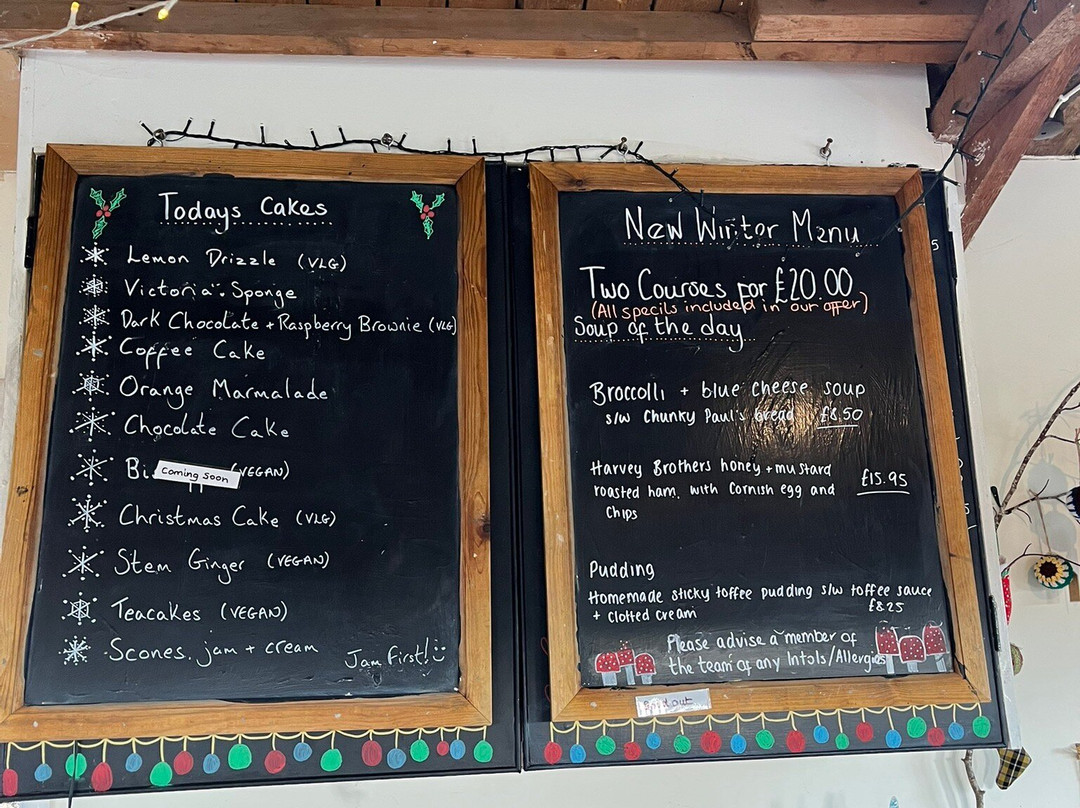 Todays Cakes
Lemon Drizzle (VLG)
Victoria Sponge
Dark Chocolate + Raspberry Brownie (VLG)
Coffee Cake
Orange Marmalade
Chocolate Cake
(VEGAN)
Coming Soon
Christmas Cake (VLG)
Stem Ginger (VEGAN)
Teacakes (VEGAN)
Scones. jam + cream
Jam First!
New Winter Menu
Two Courses for £20.00
(All specils included in our offer)
Soup of the day
Broccolli + blue cheese soup
s/w Chunky Paul's bread £8.50
Harvey Brothers honey + mustard
roasted ham, with Cornish egg and £15.95
Chips
Pudding
Homemade sticky toffee pudding s/w toffee sauce
+ Clotted cream £8.25
Please advise a member of
the team of any Intols/Allergies
Sold out
5
5